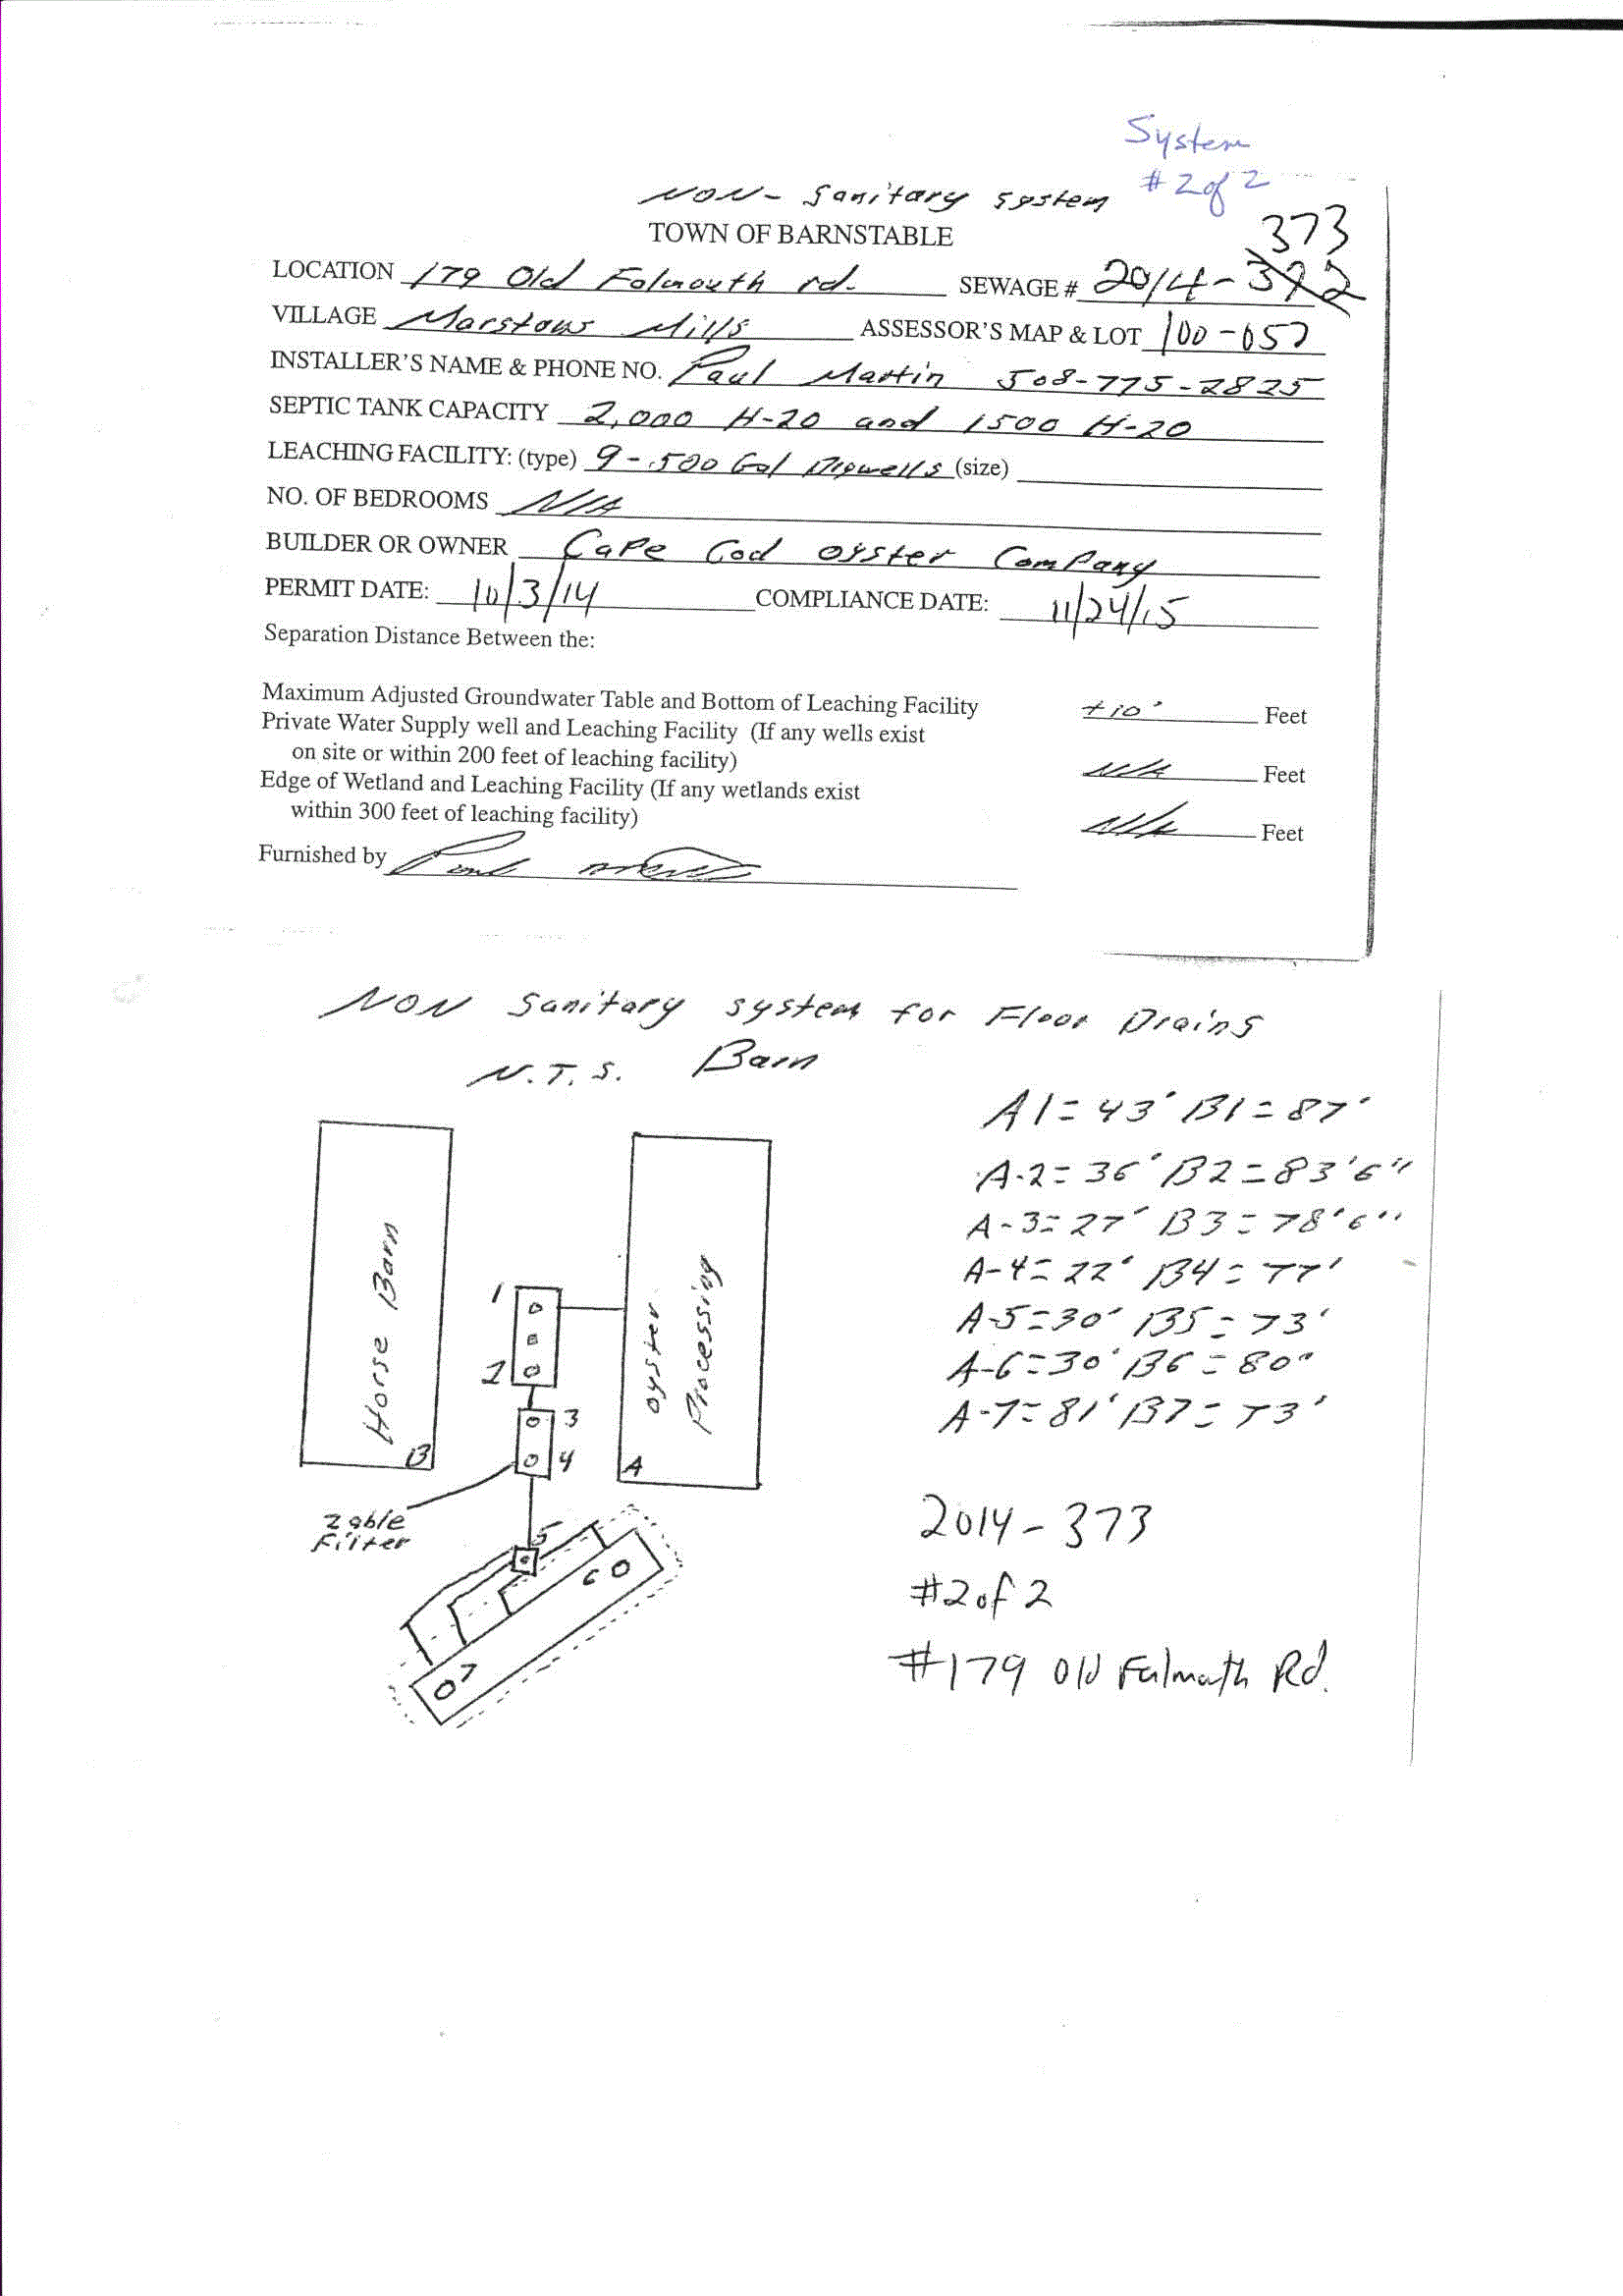 System
# 2 of 2
NON- Sanitary system
TOWN OF BARNSTABLE
373
LOCATION 179 Old Falmouth rd. SEWAGE # 2014-372
VILLAGE Marstons Mills ASSESSOR'S MAP & LOT 100-057
INSTALLER'S NAME & PHONE NO. Paul Martin 508-775-2825
SEPTIC TANK CAPACITY 2,000 H-20 and 1500 H-20
LEACHING FACILITY: (type) 9-500 Gal Drywells (size)
NO. OF BEDROOMS N/A
BUILDER OR OWNER CaPe Cod oyster ComPany
PERMIT DATE: 10/3/14 COMPLIANCE DATE: 11/24/15
Separation Distance Between the:
Maximum Adjusted Groundwater Table and Bottom of Leaching Facility +10' Feet
Private Water Supply well and Leaching Facility (If any wells exist
on site or within 200 feet of leaching facility) N/A Feet
Edge of Wetland and Leaching Facility (If any wetlands exist
within 300 feet of leaching facility) N/A Feet
Furnished by Paul
NON Sanitary system for Floor Drains
N.T.S. Barn
A1=43' B1=87'
A-2=36' B2=83'6"
A-3=27' B3=78'6"
A-4=22' B4=77'
A-5=30' B5=73'
A-6=30' B6=80"
A-7=81' B7=73'
Horse Barn
B
oyster
Processing
A
1
2
3
4
Zable
Filter
5
6
7
2014-373
#2 of 2
#179 Old Falmouth Rd.